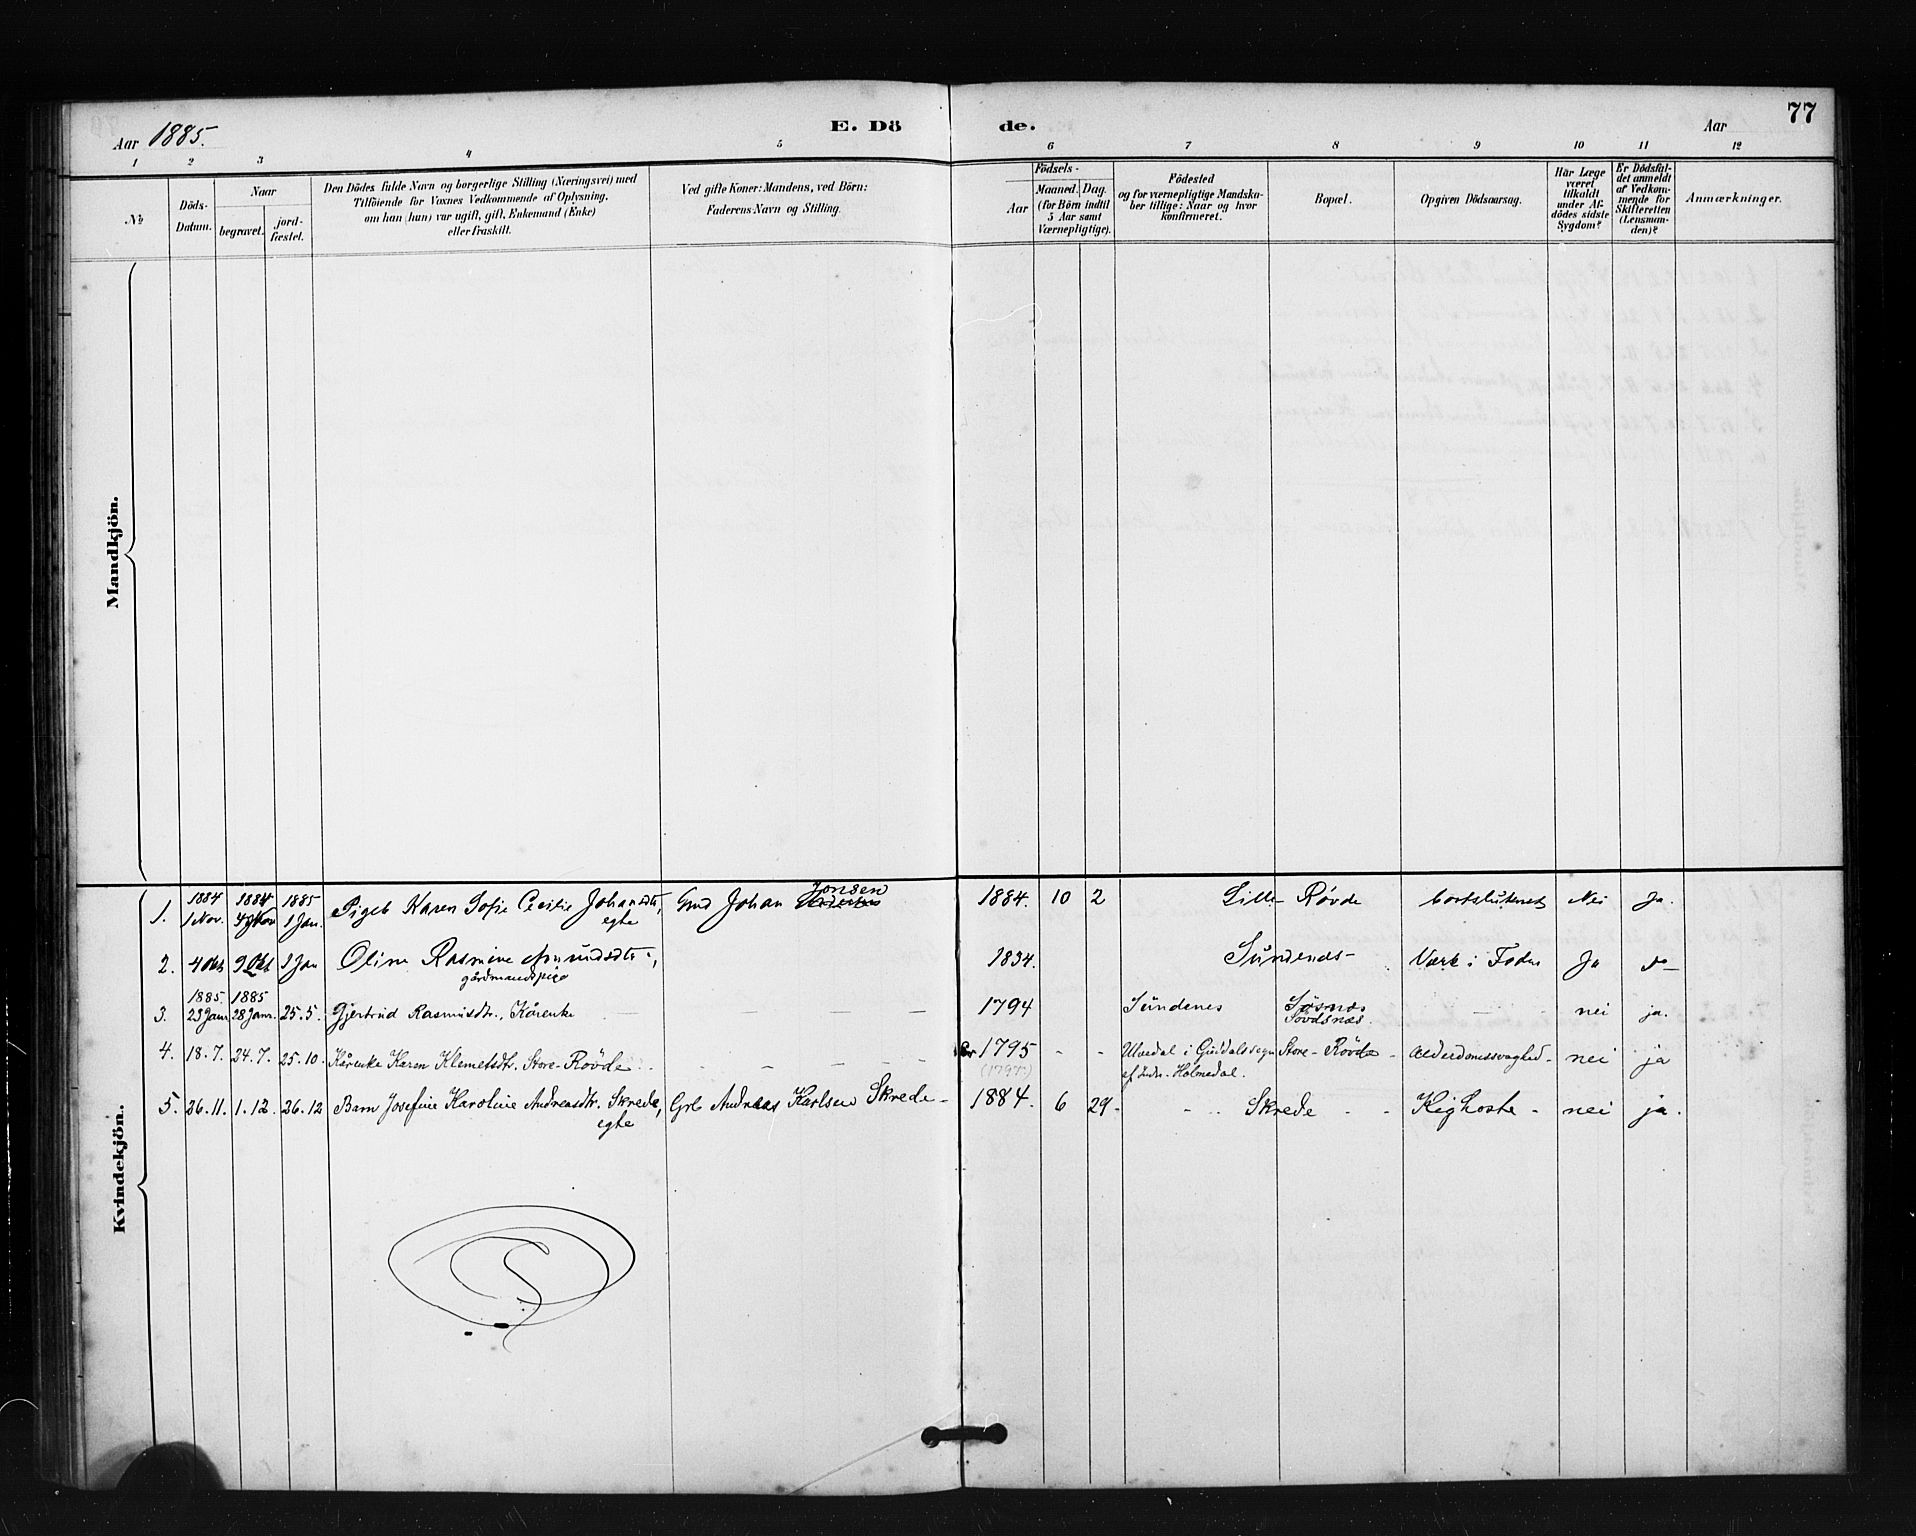 Aar 1885. E. Dö de. Aar 77
1 2 3 4 5 6 7 8 9 10 11 12
№
Döds-Datum.
Naar
begravet.
jord-fæstet.
Den Dödes fulde Navn og borgerlige Stilling (Næringsvei) med
Tilföiende for Voxnes Vedkommende af Oplysning,
om han (hun) var ugift, gift, Enkemand (Enke)
eller fraskilt.
Ved gifte Koner: Mandens, ved Börn:
Faderens Navn og Stilling.
Födsels-
Aar
Maaned. Dag.
(for Börn indtil
5 Aar samt
Værnepligtige).
Födested
og for værnepligtige Mandska-
ber tillige: Naar og hvor
konfirmeret.
Bopæl.
Opgiven Dödsaarsag.
Har Læge
været
tilkaldt
under Af-
dödes sidste
Sygdom?
Er Dödsfal-
det anmeldt
af Vedkom-
mende for
Skifteretten
(Lensman-
den)?
Anmærkninger.
Mandkjön.
Kvindekjön.
1884 1884 1885 Jonsen
1. 1 Nov. 4 Nov 1 Jan. Pigeb Karen Sofie Cecilie Johansdtr, Gmd Johan 1884. 10 2 Lille Røvde Nei Ja.
egte
2. 4 Okt 9 Okt 1 Jan Oline Rasmine Amundsdtr., 1834. Sundenes- Værk i Foden Ja
gårdmandspige
1885. 1885
3. 23 Janr 28 Janr. 25.5. Gjertrud Rasmusdtr., Kårenke — — — 1794 Sundenes Søsnæs — — nei ja.
Søvdsnæs.
4. 18.7. 24.7. 25.10. Kårenke Karen Klemetsdtr. Store-Røvde — — — 1795 - - Ulvedal i Guddalssogn Store-Røvde - Alderdomssvaghed - nei ja
(1797) af Indr. Holmedal.
5. 26.11. 1.12. 26.12 Barn Josefine Karoline Andreasdtr. Skrede, Grb Andreas Karlsen Skrede - 1884. 6 29- - - Skrede - - Kighoste - nei ja.
egte